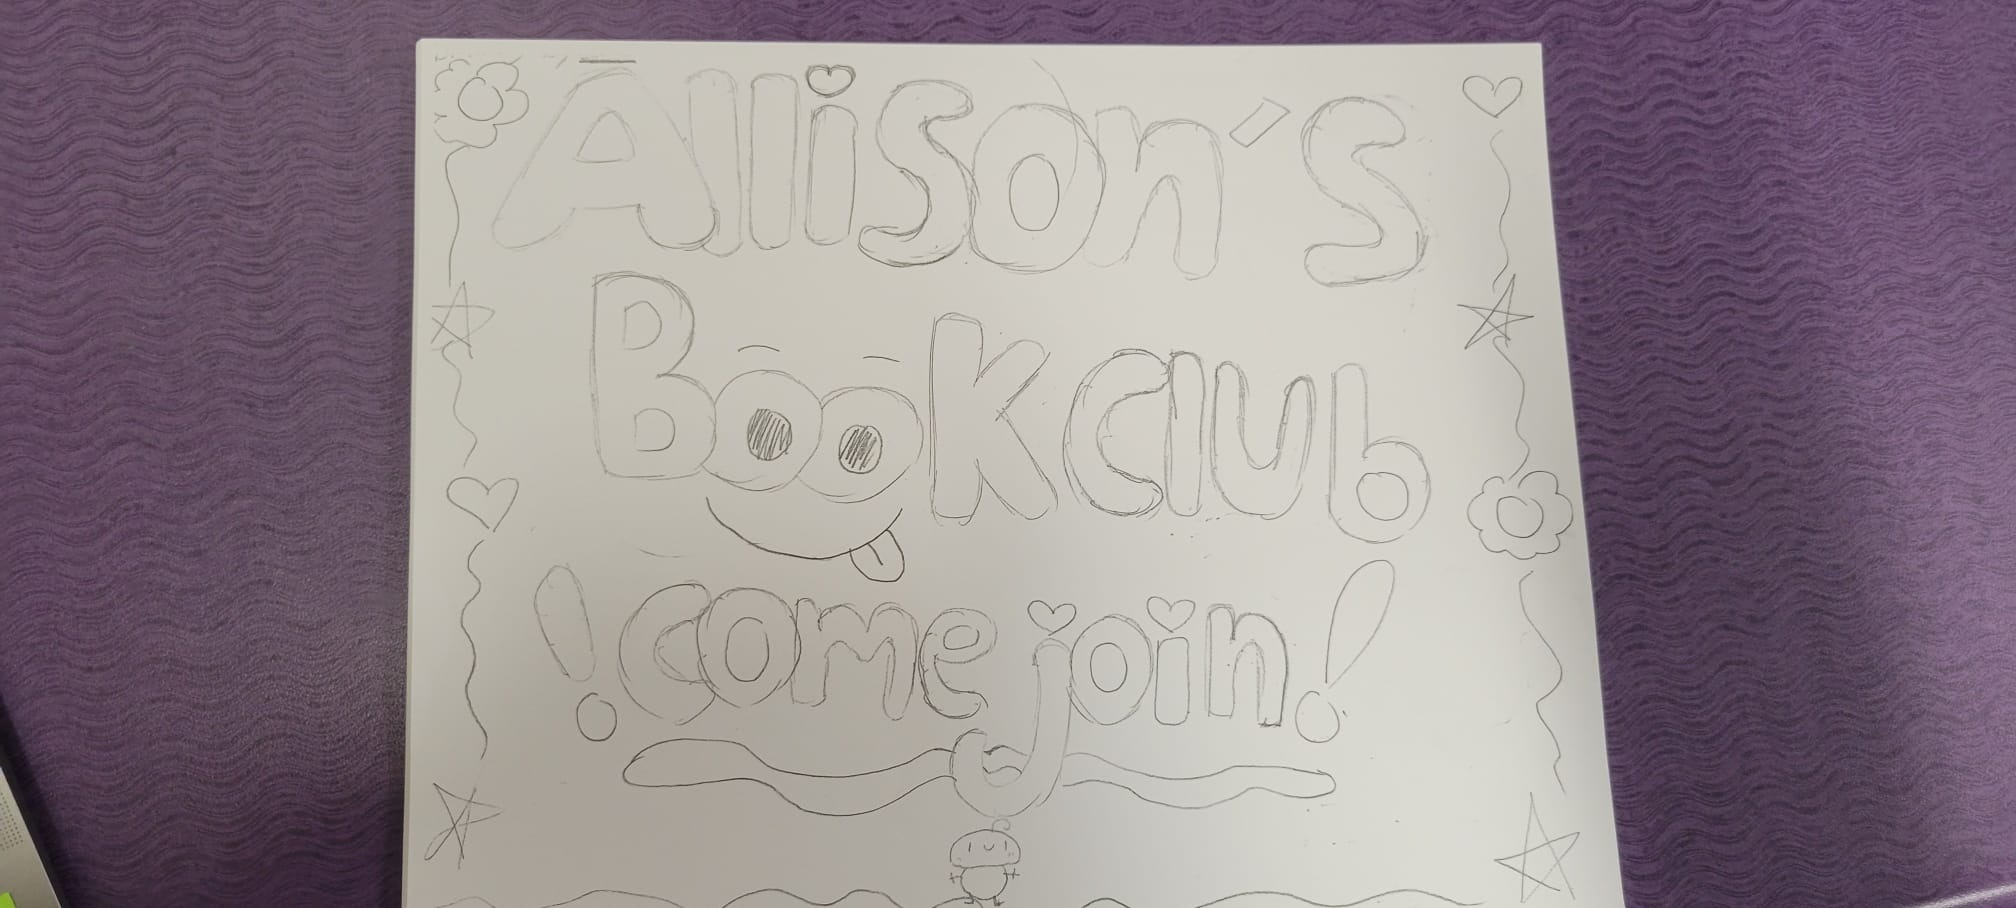 Allison's
Book club
!come join!